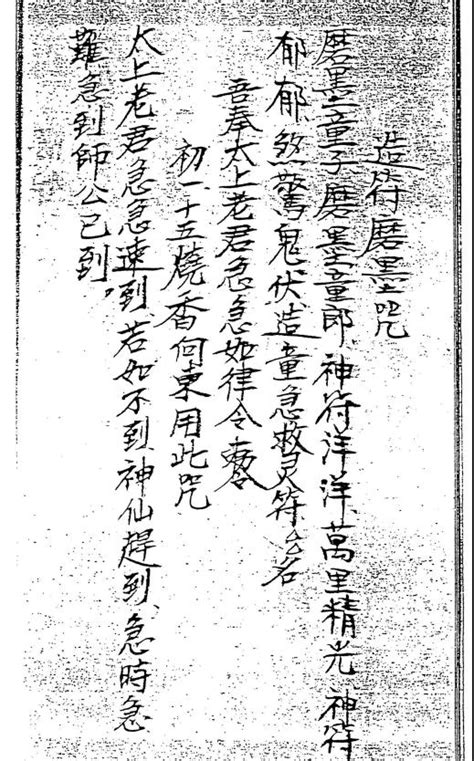 造符磨墨咒
磨墨童子磨墨童郎、神符洋洋、萬里精光、神符
郁郁、煞驚鬼伏造童急救灵符
吾奉太上老君急急如律令
初一十五燒香向東用此咒
太上老君急急速到、若如不到神仙趕到、急時急
難急到師公已到、